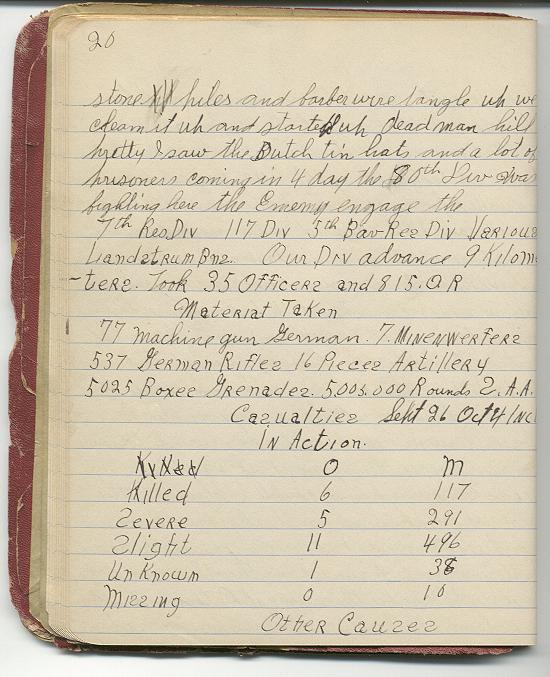 20
stone piles and barberwire tangle up we
cleam it up and started up deadman hill
pretty I saw the Dutch tin hats and a lot of
prisoners coming in 4 day the 80th Div was
fighting here the Enemy engage the
7th Res Div 117 Div 5th Bav-Rez Div Various
Landstrum Bnz. Our Div advance 9 Kilom
-terz. Took 35 Officerz and 815. O R
Material Taken
77 machine gun German. 7. Minenwerferz
537 German Riflez 16 Piecez Artillery
5025 Boxez Grenadez. 5.003.000 Rounds S.A.A.
Cazualtiez Sept 26 Oct 4 Inc
In Action.
O M
Killed 6 117
Severe 5 291
Slight 11 496
UnKnown 1
Mizzing 0 10
Other Cauzez